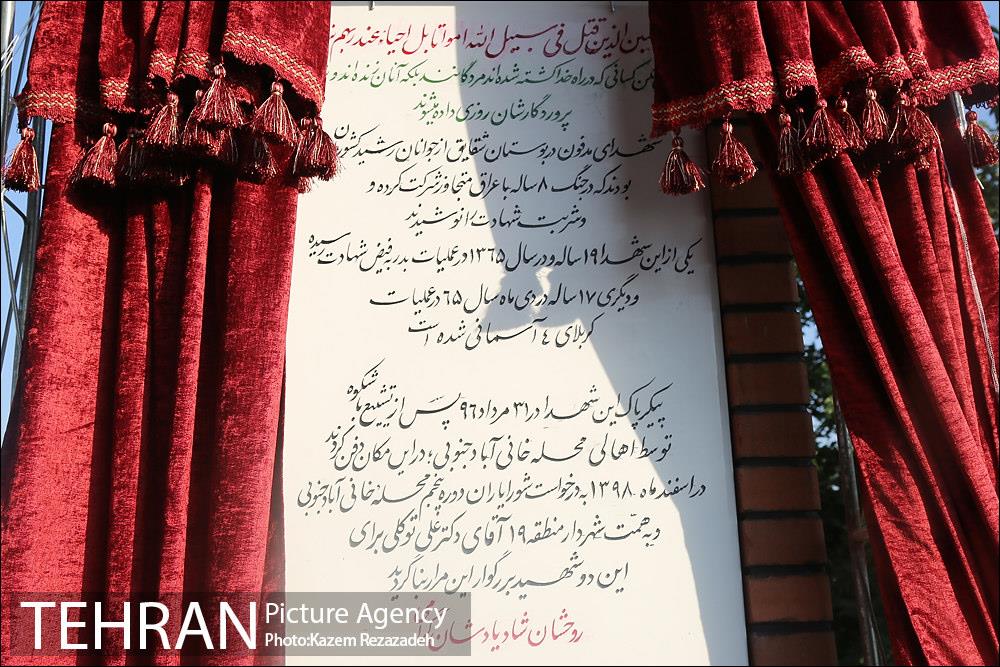 الذین قتل فی سبیل الله امواتا بل احیاء عند ربهم
کسانی که در راه خدا کشته شده‌اند مردگانند بلکه آنان زنده‌اند و
پروردگارشان روزی داده میشوند
شهدای مدفون در بوستان شقایق از جوانان رشید کشور
بودند که در جنگ ۸ ساله با عراق متجاوز شرکت کرده و
و شربت شهادت را نوشیدند
یکی از این شهدا ۱۹ ساله و در سال ۱۳۶۵ در عملیات بدر به فیض شهادت رسیده
و دیگری ۱۷ ساله در دی ماه سال ۶۵ در عملیات
کربلای ٤ آسمانی شده است
پیکر پاک این شهدا در ۳۱ مرداد ۹۶ پس از تشییع با شکوه
توسط اهالی محله خانی آباد جنوبی؛ در این مکان دفن گردند
در اسفند ماه ۱۳۹۸ به درخواست شورایاران دوره پنجم محله خانی آباد جنوبی
و به همّت شهردار منطقه ۱۹ آقای دکتر علی توکلی برای
این دو شهید بزرگوار این مزار بنا گردید
روحشان شاد یادشان
TEHRAN Picture Agency
Photo:Kazem Rezazadeh